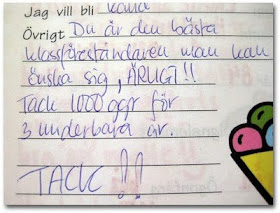 Jag vill bli känd
Övrigt Du är den bästa
klassföreståndaren man kan
önska sig, ÄRLIGT!!
Tack 1000 ggr för
3 underbara år.
TACK!!